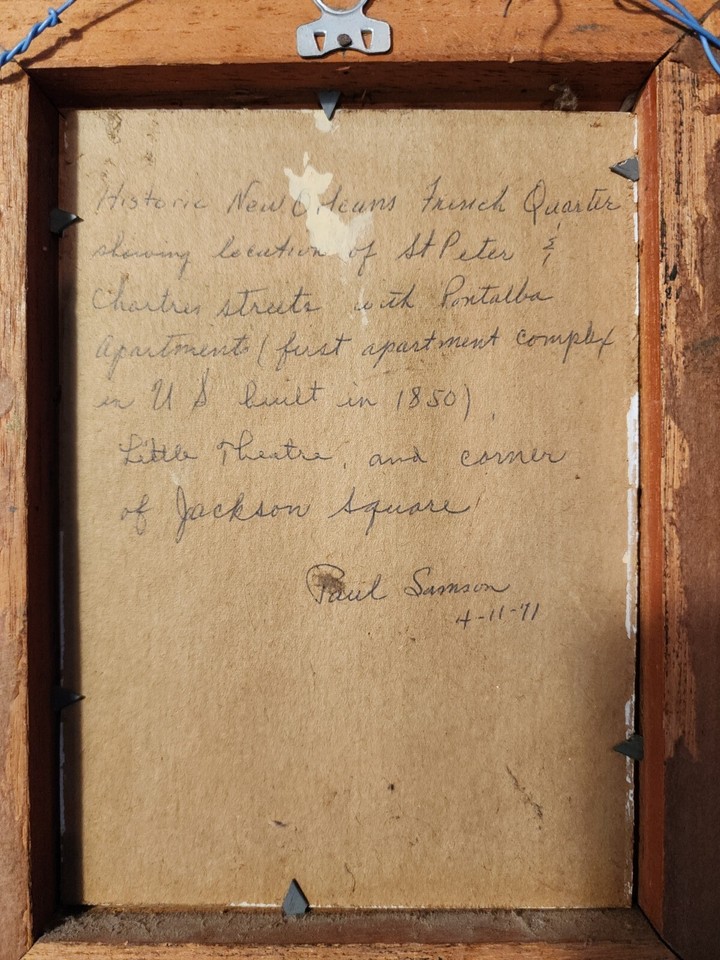 Historic New Orleans French Quarter
showing location of St Peter &
Chartres streets with Pontalba
Apartments (first apartment complex
in U S built in 1850),
Little Theatre, and corner
of Jackson Square
Paul Samson
4-11-71